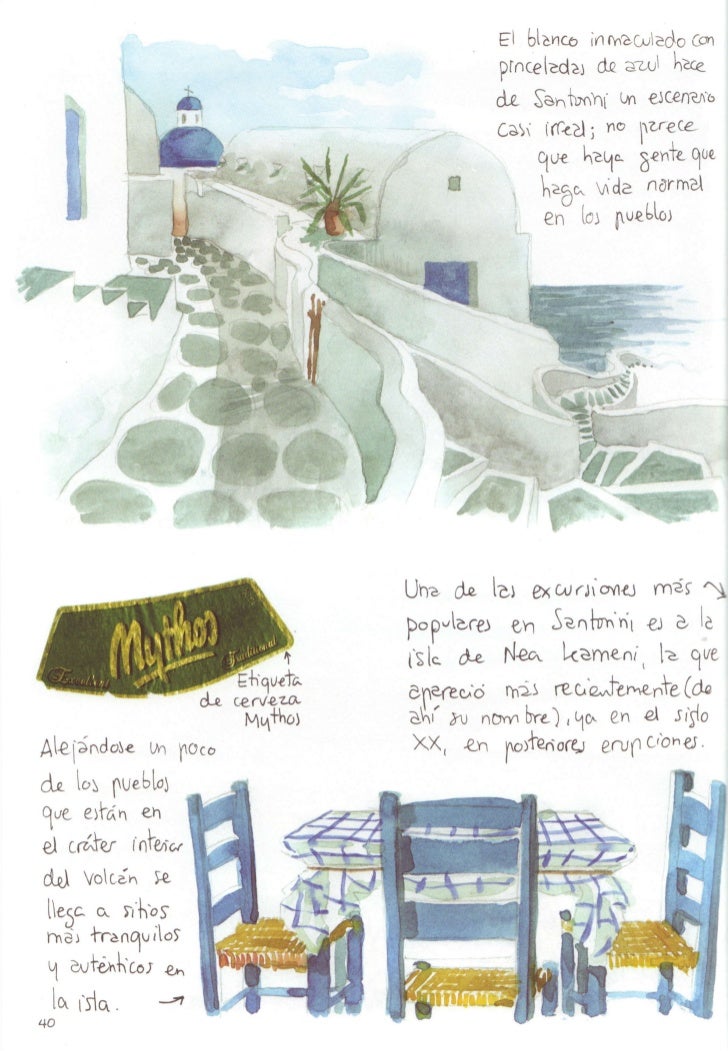 El blanco inmaculado con
pinceladas de azul hace
de Santorini un escenario
casi irreal; no parece
que haya gente que
haga vida normal
en los pueblos
Mythos
Excellent
Traditional
Etiqueta
de cerveza
Mythos
Una de las excursiones más
populares en Santorini es a la
isla de Nea Kameni, la que
apareció más recientemente (de
ahí su nombre), ya en el siglo
XX, en posteriores erupciones.
Alejándose un poco
de los pueblos
que están en
el cráter interior
del volcán se
llega a sitios
más tranquilos
y auténticos en
la isla.
40